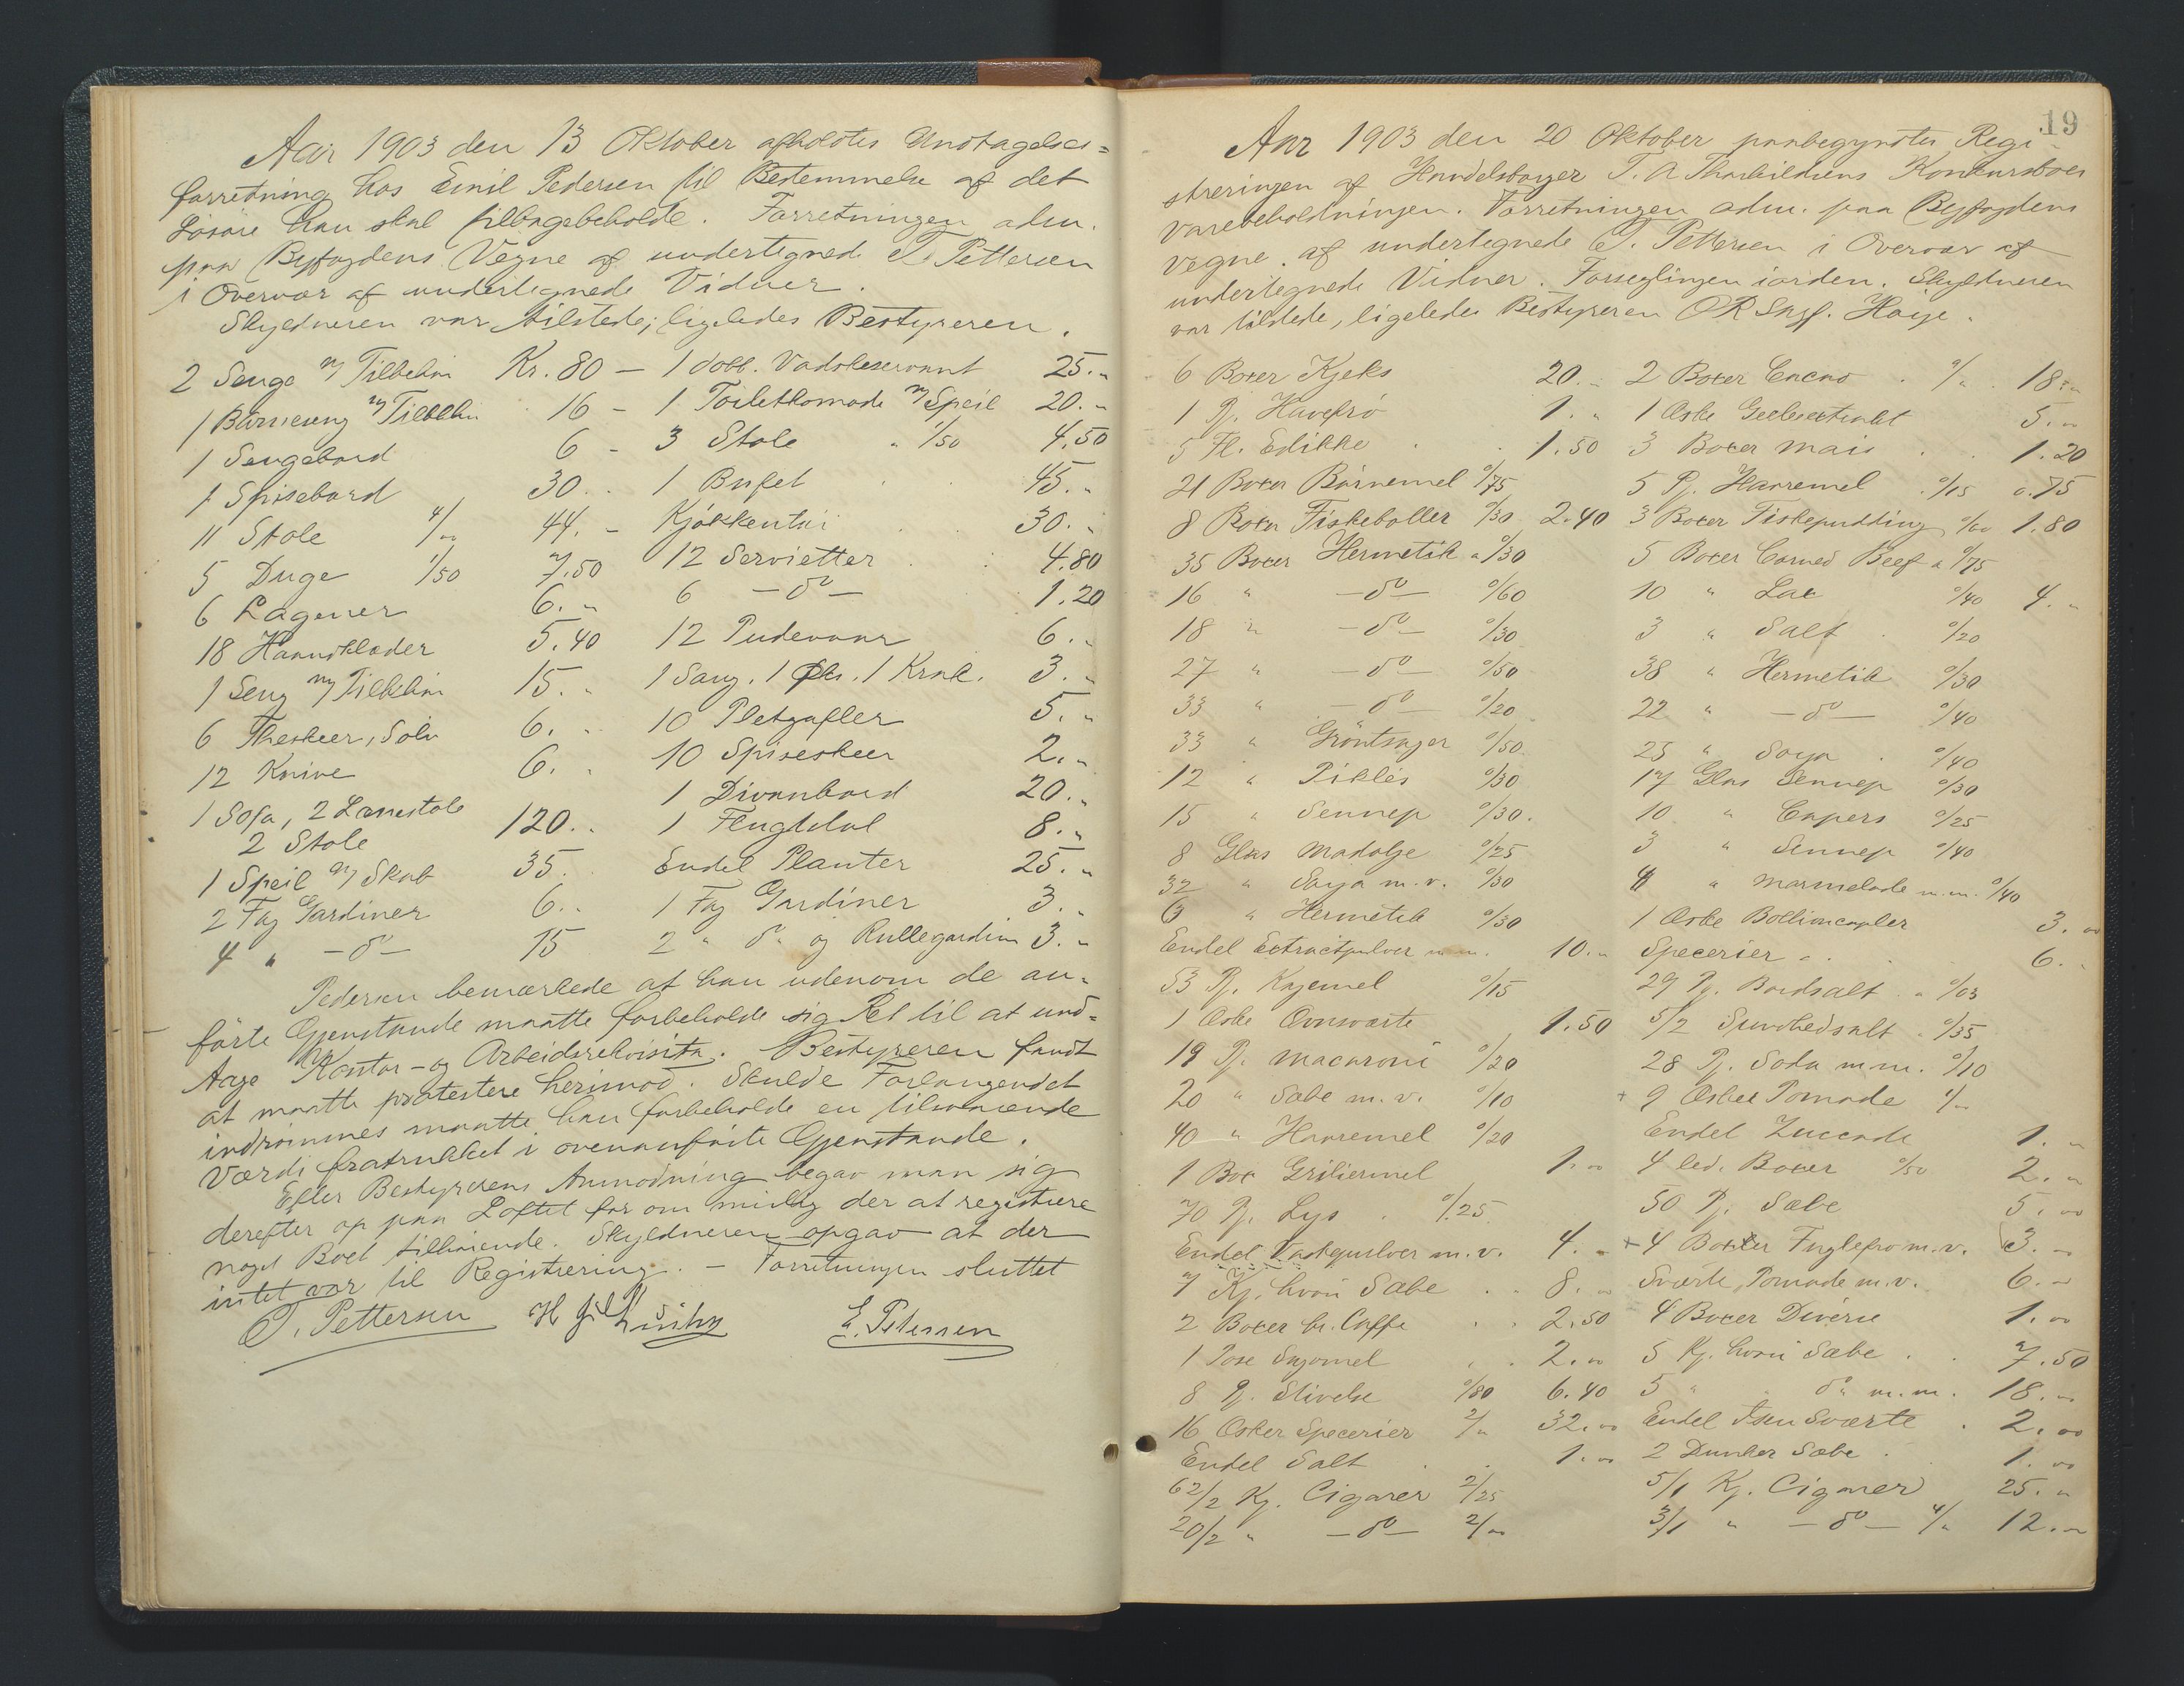 Aar 1903 den 13 Oktober afholdtes Undtagelses=
forretning hos Emil Pedersen til Bestemmelse af det
Løsøre han skal tilbagebeholde. Forretningen adm.
paa Byfogdens Vegne af undertegnede T. Pettersen
i Overvær af undertegnede Vidner.
Skyldneren var tilstede; ligeledes Bestyreren.
2 Senge m/ Tilbehør Kr. 80 — 1 dobb. Vadskeservant 25.„
1 Barneseng m/ Tilbehør 16 — 1 Toiletkomode m/ Speil 20.„
1 Sengebord 6 - 3 Stole „ 1/50 4.50
1 Spisebord 30.. 1 Bufet 45.„
11 Stole 4/„ 44. - Kjøkkentøi 30.„
5 Duge 1/50 7.50 12 Servietter 4.80
6 Lagener 6.„ 6 —do— 1.20
18 Haandklæder 5.40 12 Pudevaar 6.„
1 Seng m/ Tilbehør 15.„ 1 Saug. 1 Øks. 1 Krak. 3.„
6 Theskeer, Sølv 6.„ 10 Pletgafler 5.„
12 Knive 6.„ 10 Spiseskeer 2.„
1 Sofa, 2 Lænestole 1 Divanbord 20.„
2 Stole 120.. 1 Flugtstol 8.„
1 Speil m/ Skab 35. Endel Planter 25.„
2 Fag Gardiner 6.. 1 Fag Gardiner 3.„
4 „ —do— 15 2 „ do „ og Rullegardin 3.„
Pedersen bemærkede at han udenom de an-
førte Gjenstande maatte forbeholde sig Ret til at und-
tage Kontor- og Arbeidsrekvisita. Bestyreren fandt
at maatte protestere herimod. Skulde Forlangendet
indrømmes maatte han forbeholde en tilsvarende
Værdi fratrukket i ovenanførte Gjenstande.
Efter Bestyrerens Anmodning begav man sig
derefter op paa Loftet for om mulig der at registrere
noget Boet tilhørende. Skyldneren opgav at der
intet var til Registrering. — Forretningen sluttet
T. Pettersen E. Petersen
19
Aar 1903 den 20 Oktober paabegyndtes Regi-
streringen af Handelsborger T. A. Thorkildsens Konkursboes
Varebeholdningen. Forretningen adm. paa Byfogdens
Vegne af undertegnede T. Pettersen i Overvær af
undertegnede Vidner. Forseglingen iorden. Skyldneren
var tilstede, ligeledes Bestyreren OR Sagf. Høije.
6 Boxer Kjeks 20.- 2 Boxer Cacao 9/„ 18.„
1 P. Havefrø 1.„ 1 Æske Geeleextrakt 5.„
5 Fl. Edikke 1.50 3 Boxer Mais 1.20
21 Boxer Børnemel 0/75 5 P. Havremel 0/15 0.75
8 Boxer Fiskeboller 0/30 2.40 3 Boxer Fiskepudding 0/60 1.80
35 Boxer Hermetik a 0/30 5 Boxer Corned Beef a 0/75
16 „ —do— 0/60 10 „ Lax 0/40 4.„
18 „ —do— 0/30 3 „ Salt 0/20
27 „ —do— 0/50 38 „ Hermetik 0/30
33 „ —do— 0/20 22 „ —do— 0/40
33 „ Grøntsager 0/50 25 „ Soya 0/40
12 „ Pikles 0/30 17 Glas Sennep 0/30
15 „ Sennep 0/30 10 „ Capers 0/25
8 Glas Madolje 0/25 3 „ Sennep 0/40
32 „ Soya m.v. 0/30 8 „ Marmelade m.m. 0/40
6 „ Hermetik 0/30 1 Æske Bollioncapler 3.„
Endel Extractpulver m.m. 10.„ Specerier 6.-
53 P. Kagemel 0/15 29 P. Bordsalt „ 0/03
1 Æske Ovnsværte 1.50 5/2 Sundhedsalt 0/35
19 P. Macaroni 0/20 28 P. Soda m.m. 0/10
20 „ Sæbe m.v. 0/10 + 9 Æsker Pomade 1/„
40 „ Havremel 0/20 Endel Zuccade 1.„
1 Box Griliermel 1.„ 4 led. Boxer 0/50 2.„
70 P. Lys 0/25 50 P. Sæbe 5.„
Endel Vaskepulver m.v. 4.- + 4 Boxer Fuglefrø m.v. 3.-
7 Kg. hvid Sæbe 8.„ Sværte, Pomade m.v. 6.-
2 Boxer br. Caffe 2.50 4 Boxer Diverse 1.„
1 Pose Sagomel 2.„ 5 Kg. hvid Sæbe 7.50
8 P. Stivelse 0/80 6.40 5 „ do „ m.m. 18.„
16 Æsker Specerier 2/„ 32.„ Endel Isen Sværte 2.„
Endel Salt 1.„ 2 Dunker Sæbe 1.„
62/2 Kg. Cigarer 2/25 5/1 Kg. Cigarer 25.„
20/2 „ —do— 2/„ 3/1 „ —do— 4/„ 12.„